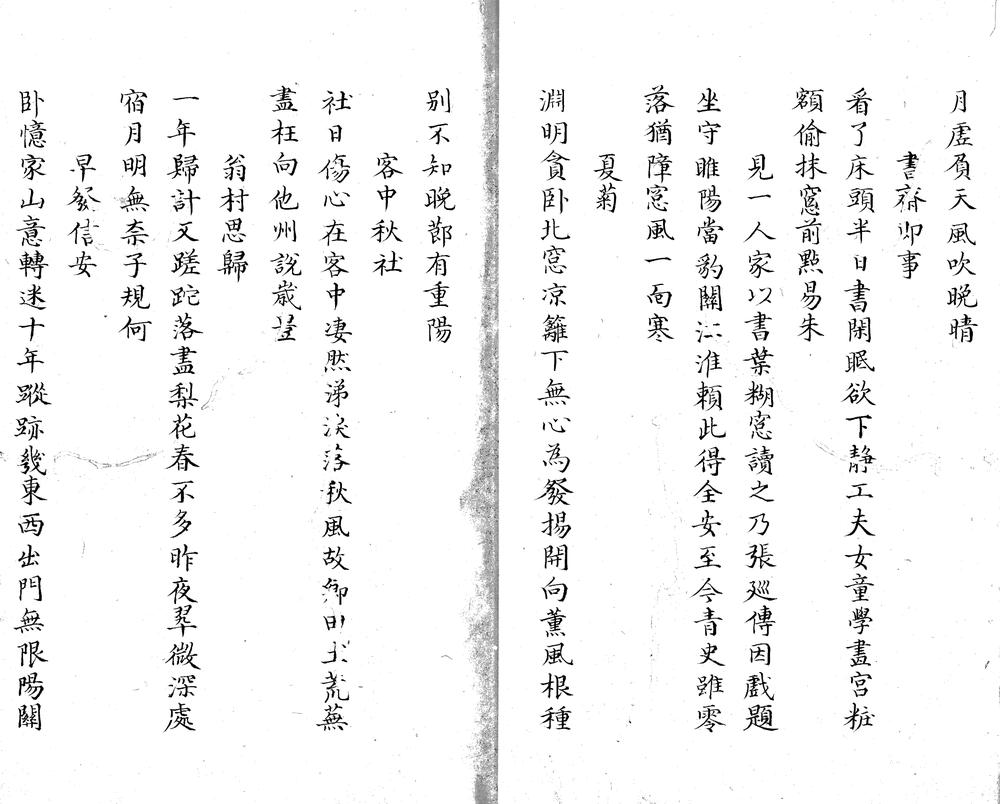 月虛負天風吹晚晴
書齋即事
看了床頭半日書閑眠欲下靜工夫女童學畫宮粧
額偷抹窓前點易朱
見一人家以書葉糊窓讀之乃張廵傳因戲題
坐守睢陽當豹關江淮賴此得全安至今青史雖零
落猶障窓風一面寒
夏菊
淵明貪卧北窓凉籬下無心為發揚開向薰風根種
别不知晚節有重陽
客中秋社
社日傷心在客中凄然涕淚落秋風故鄉田土荒蕪
盡枉向他州說歲豊
翁村思歸
一年歸計又蹉跎落盡梨花春不多昨夜翠微深處
宿月明無柰子規何
早發信安
卧憶家山意轉迷十年蹤跡幾東西出門無限陽關